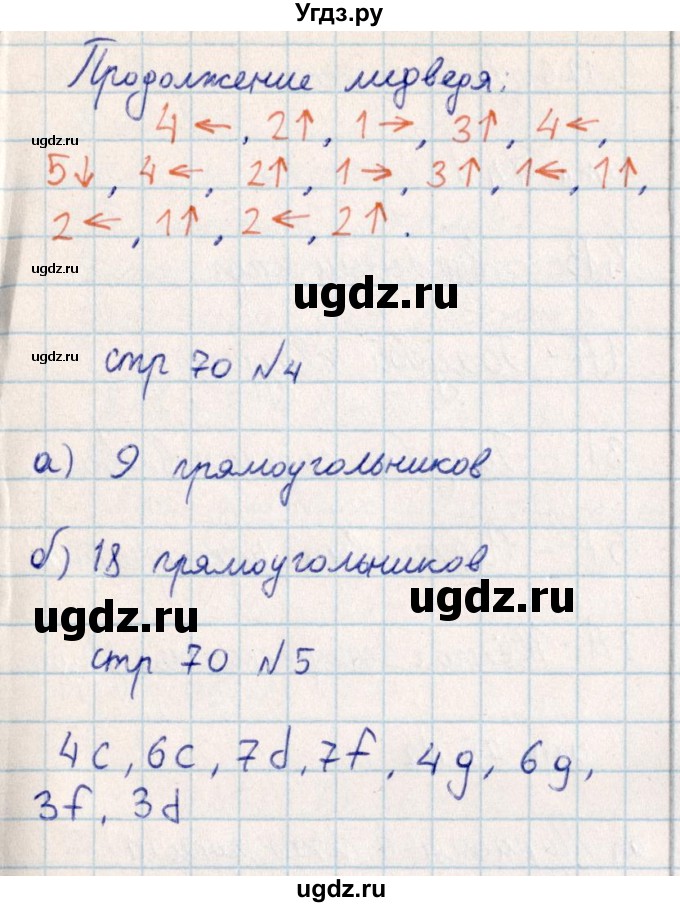 Угдз.ру
Продолжение медведя:
ugdz.ru
4 ←, 2↑, 1→, 3↑, 4←,
5↓, 4←, 2↑, 1→, 3↑, 1←, 1↑,
2←, 1↑, 2←, 2↑.
ugdz.ru
ugdz.ru
ugdz.ru
стр 70 №4
а) 9 прямоугольников
б) 18 прямоугольников
ugdz.ru
ugdz.ru
стр 70 №5
4c, 6c, 7d, 7f, 4g, 6g,
3f, 3d
ugdz.ru